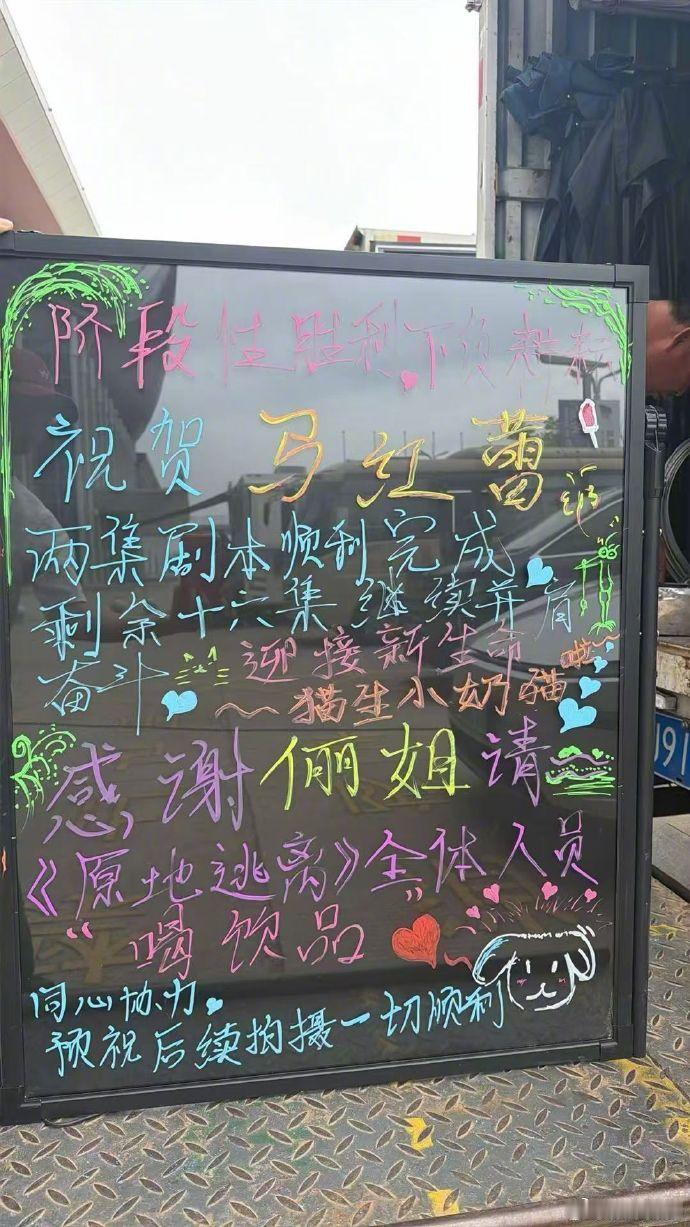 阶段性胜利下须
祝贺马红蕾
两集剧本顺利完成
剩余十六集继续并肩
奋斗 迎接新生命
~猫生小奶猫啦~
感谢俪姐请
《原地逃离》全体人员
“喝饮品”
同心协力
预祝后续拍摄一切顺利
91